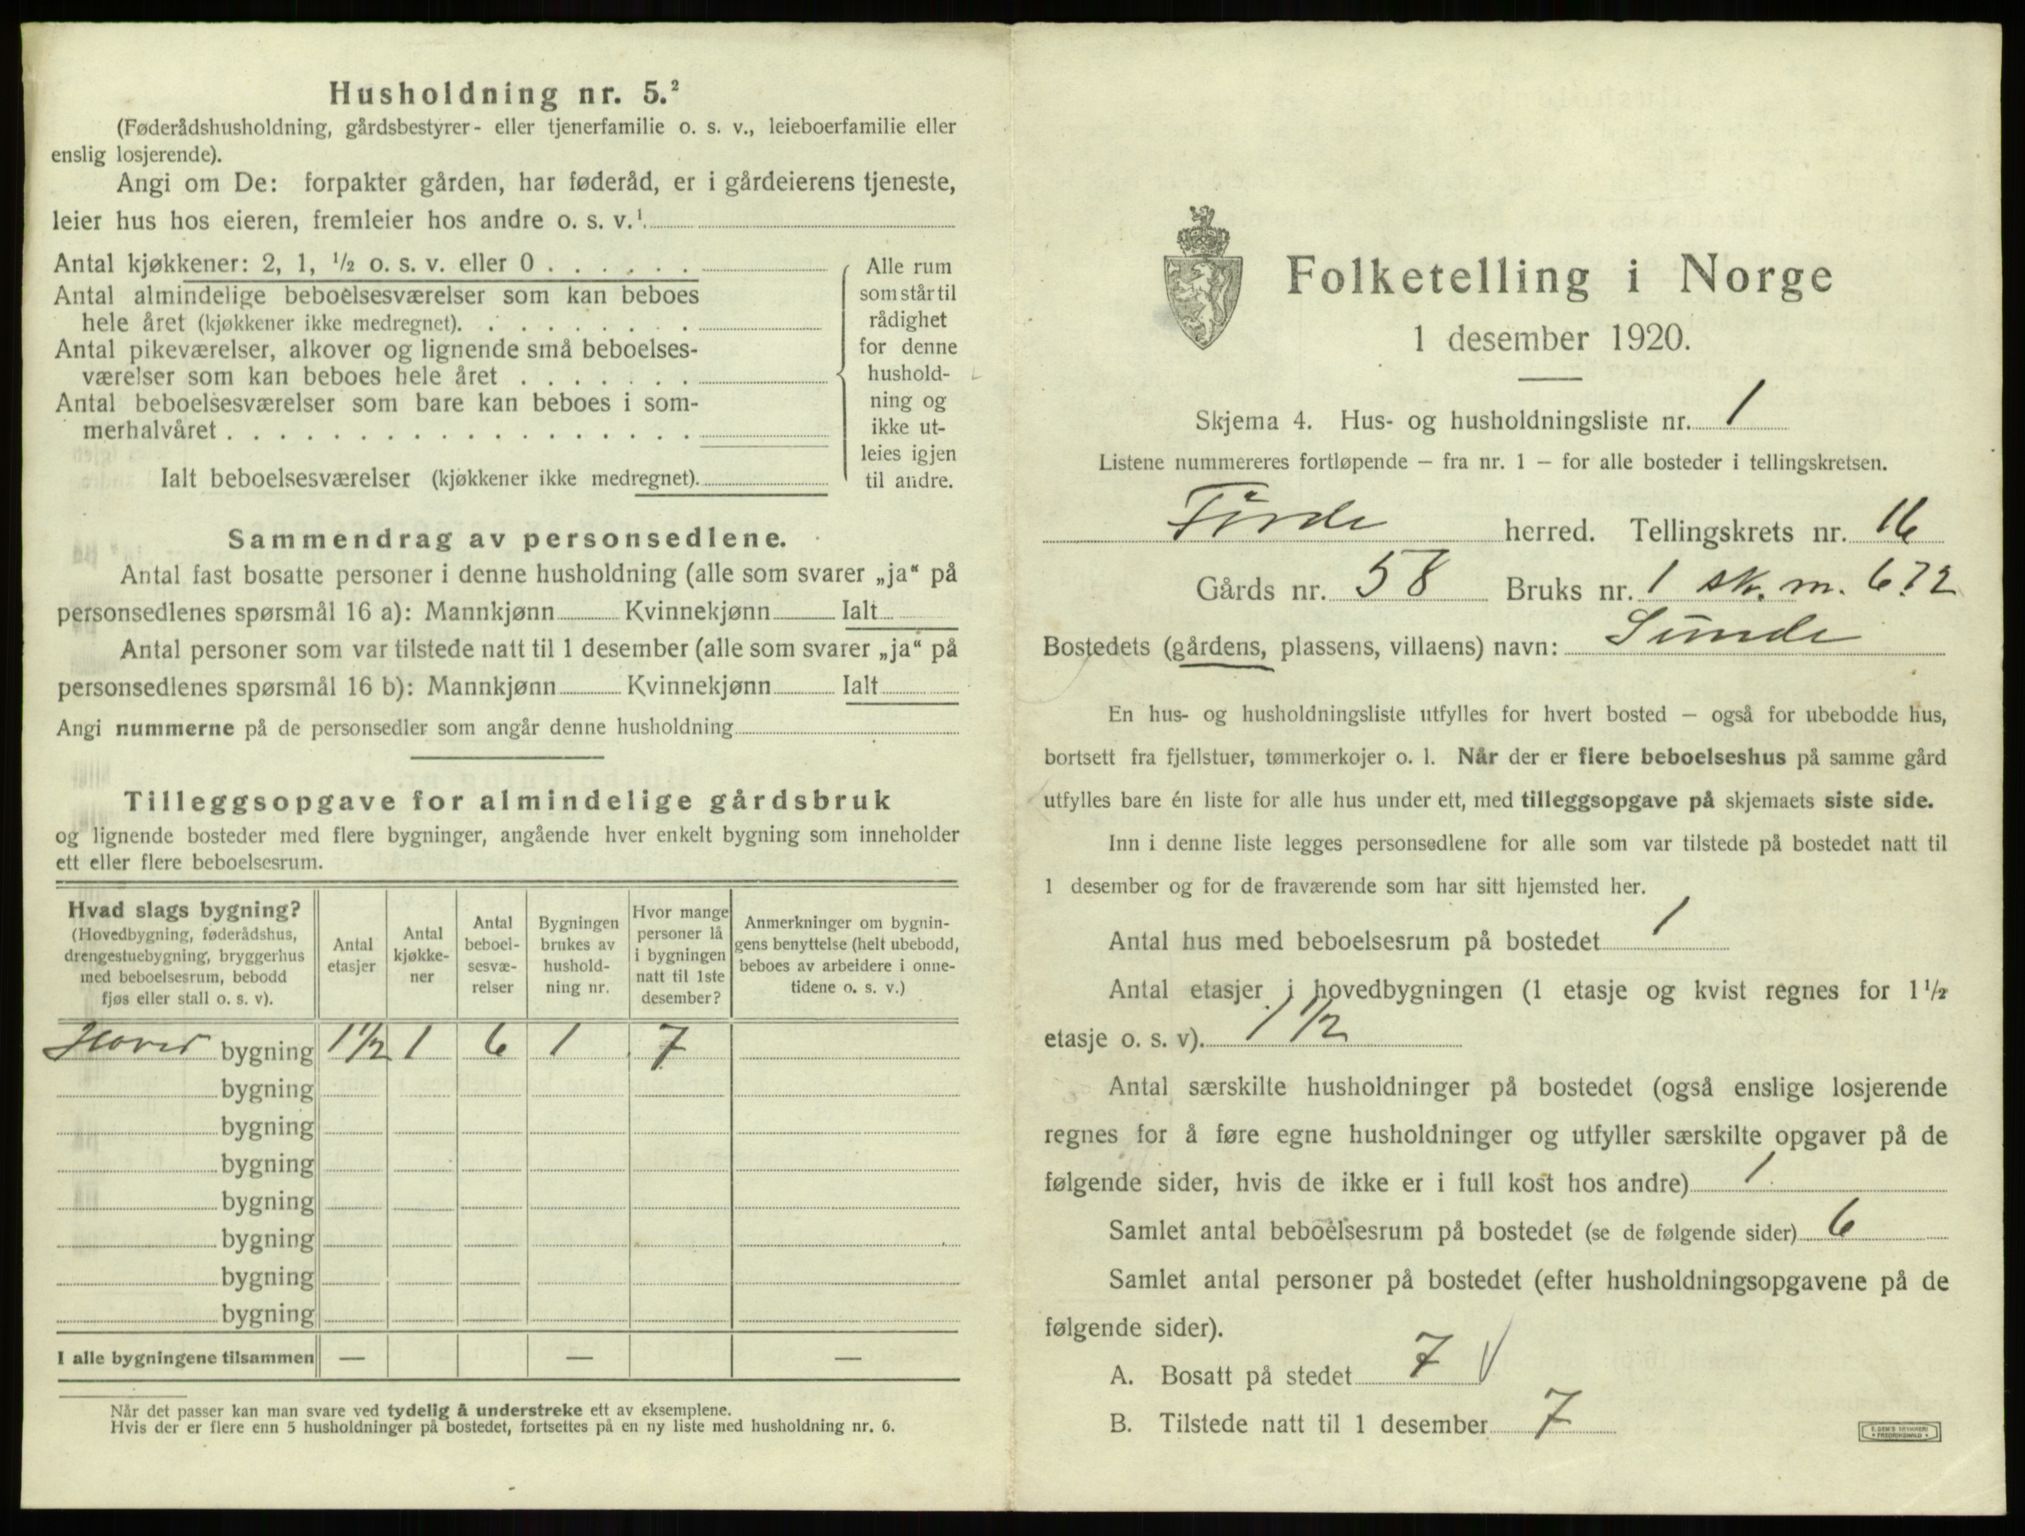 Husholdning nr. 5.²
(Føderådshusholdning, gårdsbestyrer- eller tjenerfamilie o. s. v., leieboerfamilie eller
enslig losjerende).
Angi om De: forpakter gården, har føderåd, er i gårdeierens tjeneste,
leier hus hos eieren, fremleier hos andre o. s. v.¹
Antal kjøkkener: 2, 1, ½ o. s. v. eller 0 . . . . . .
Antal almindelige beboelsesværelser som kan beboes
hele året (kjøkkener ikke medregnet). . . . . . . . .
Antal pikeværelser, alkover og lignende små beboelses-
værelser som kan beboes hele året . . . . . . .
Antal beboelsesværelser som bare kan beboes i som-
merhalvåret . . . . . . . . . . . . . . . . . .
Ialt beboelsesværelser (kjøkkener ikke medregnet).
Alle rum
som står til
rådighet
for denne
hushold-
ning og
ikke ut-
leies igjen
til andre.
Sammendrag av personsedlene.
Antal fast bosatte personer i denne husholdning (alle som svarer „ja“ på
personsedlenes spørsmål 16 a): Mannkjønn Kvinnekjønn Ialt
Antal personer som var tilstede natt til 1 desember (alle som svarer „ja“ på
personsedlenes spørsmål 16 b): Mannkjønn Kvinnekjønn Ialt
Angi nummerne på de personsedler som angår denne husholdning
Tilleggsopgave for almindelige gårdsbruk
og lignende bosteder med flere bygninger, angående hver enkelt bygning som inneholder
ett eller flere beboelsesrum.
Hvad slags bygning?
(Hovedbygning, føderådshus,
drengestuebygning, bryggerhus
med beboelsesrum, bebodd
fjøs eller stall o. s. v).
Antal
etasjer
Antal
kjøkke-
ner
Antal
beboel-
sesvæ-
relser
Bygningen
brukes av
hushold-
ning nr.
Hvor mange
personer lå
i bygningen
natt til 1ste
desember?
Anmerkninger om bygnin-
gens benyttelse (helt ubebodd,
beboes av arbeidere i onne-
tidene o. s. v.)
Hoved bygning 1½ 1 6 1 7
bygning
bygning
bygning
bygning
bygning
bygning
bygning
I alle bygningene tilsammen — — —
Når det passer kan man svare ved tydelig å understreke ett av eksemplene.
Hvis der er flere enn 5 husholdninger på bostedet, fortsettes på en ny liste med husholdning nr. 6.
Folketelling i Norge
1 desember 1920.
Skjema 4. Hus- og husholdningsliste nr. 1
Listene nummereres fortløpende – fra nr. 1 – for alle bosteder i tellingskretsen.
Førde herred. Tellingskrets nr. 16
Gårds nr. 58 Bruks nr. 1 sk. m. 6.72
Bostedets (gårdens, plassens, villaens) navn: Sunde
En hus- og husholdningsliste utfylles for hvert bosted – også for ubebodde hus,
bortsett fra fjellstuer, tømmerkojer o. l. Når der er flere beboelseshus på samme gård
utfylles bare én liste for alle hus under ett, med tilleggsopgave på skjemaets siste side.
Inn i denne liste legges personsedlene for alle som var tilstede på bostedet natt til
1 desember og for de fraværende som har sitt hjemsted her.
Antal hus med beboelsesrum på bostedet 1
Antal etasjer i hovedbygningen (1 etasje og kvist regnes for 1½
etasje o. s. v). 1 ½
Antal særskilte husholdninger på bostedet (også enslige losjerende
regnes for å føre egne husholdninger og utfyller særskilte opgaver på de
følgende sider, hvis de ikke er i full kost hos andre) 1
Samlet antal beboelsesrum på bostedet (se de følgende sider) 6
Samlet antal personer på bostedet (efter husholdningsopgavene på de
følgende sider).
A. Bosatt på stedet 7 V
B. Tilstede natt til 1 desember 7